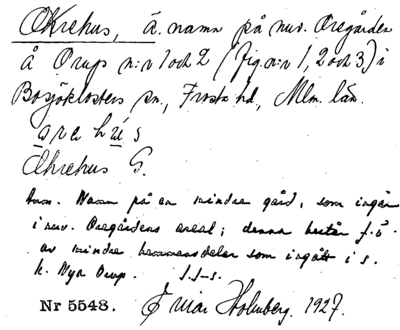 Åkrehus, ä. namn på nuv. Oregården
å Orups n:r 1 och 2 (fig. n:r 1, 2 och 3) i
Bosjöklosters sn., Frosta hd, Mlm. län.
Åkrehus G.
Anm. Namn på en mindre gård, som ingår
i nuv. Oregårdens areal; denna består f. ö.
av mindre hemmansdelar som ingått i s.
k. Nya Orup.
Nr 5548. Einar Holmberg. 1927.